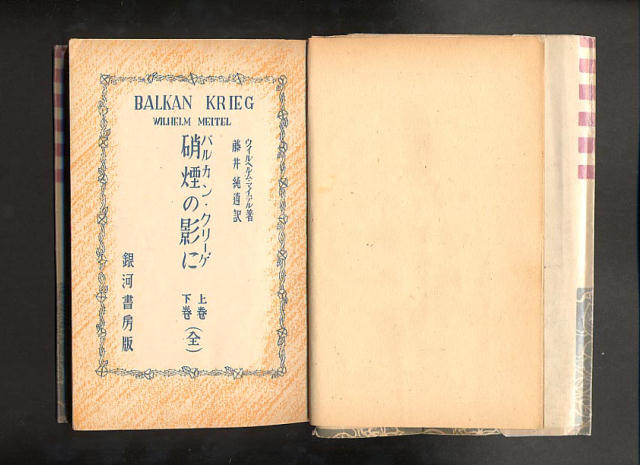 BALKAN KRIEG
WILHELM MEITEL
ウイルヘルム・マイテル著
藤井純逍訳
バルカン・クリーゲ
硝煙の影に
上巻
下巻
(全)
銀河書房版